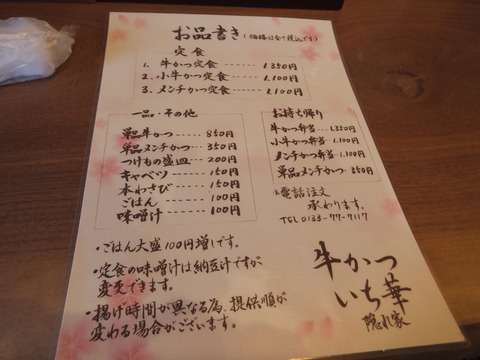 お品書き（価格は全て税込です）
定食
1. 牛かつ定食 ---- 1.350円
2. 小牛かつ定食 ---- 1.100円
3. メンチかつ定食 ---- 1.100円
一品・その他
単品牛かつ ---- 850円
単品メンチかつ ---- 350円
つけもの盛皿 ---- 200円
キャベツ ---- 150円
本わさび ---- 150円
ごはん ---- 100円
味噌汁 ---- 100円
お持ち帰り
牛かつ弁当 --- 1.350円
小牛かつ弁当 -- 1.100円
メンチかつ弁当 - 1.100円
単品メンチかつ -- 350円
※電話注文
承わります。
TEL 0133-77-7117
・ごはん大盛100円増しです。
・定食の味噌汁は納豆汁ですが
変更できます。
・揚げ時間が異なる為、提供順が
変わる場合がございます。
牛かつ
いち華
隠れ家